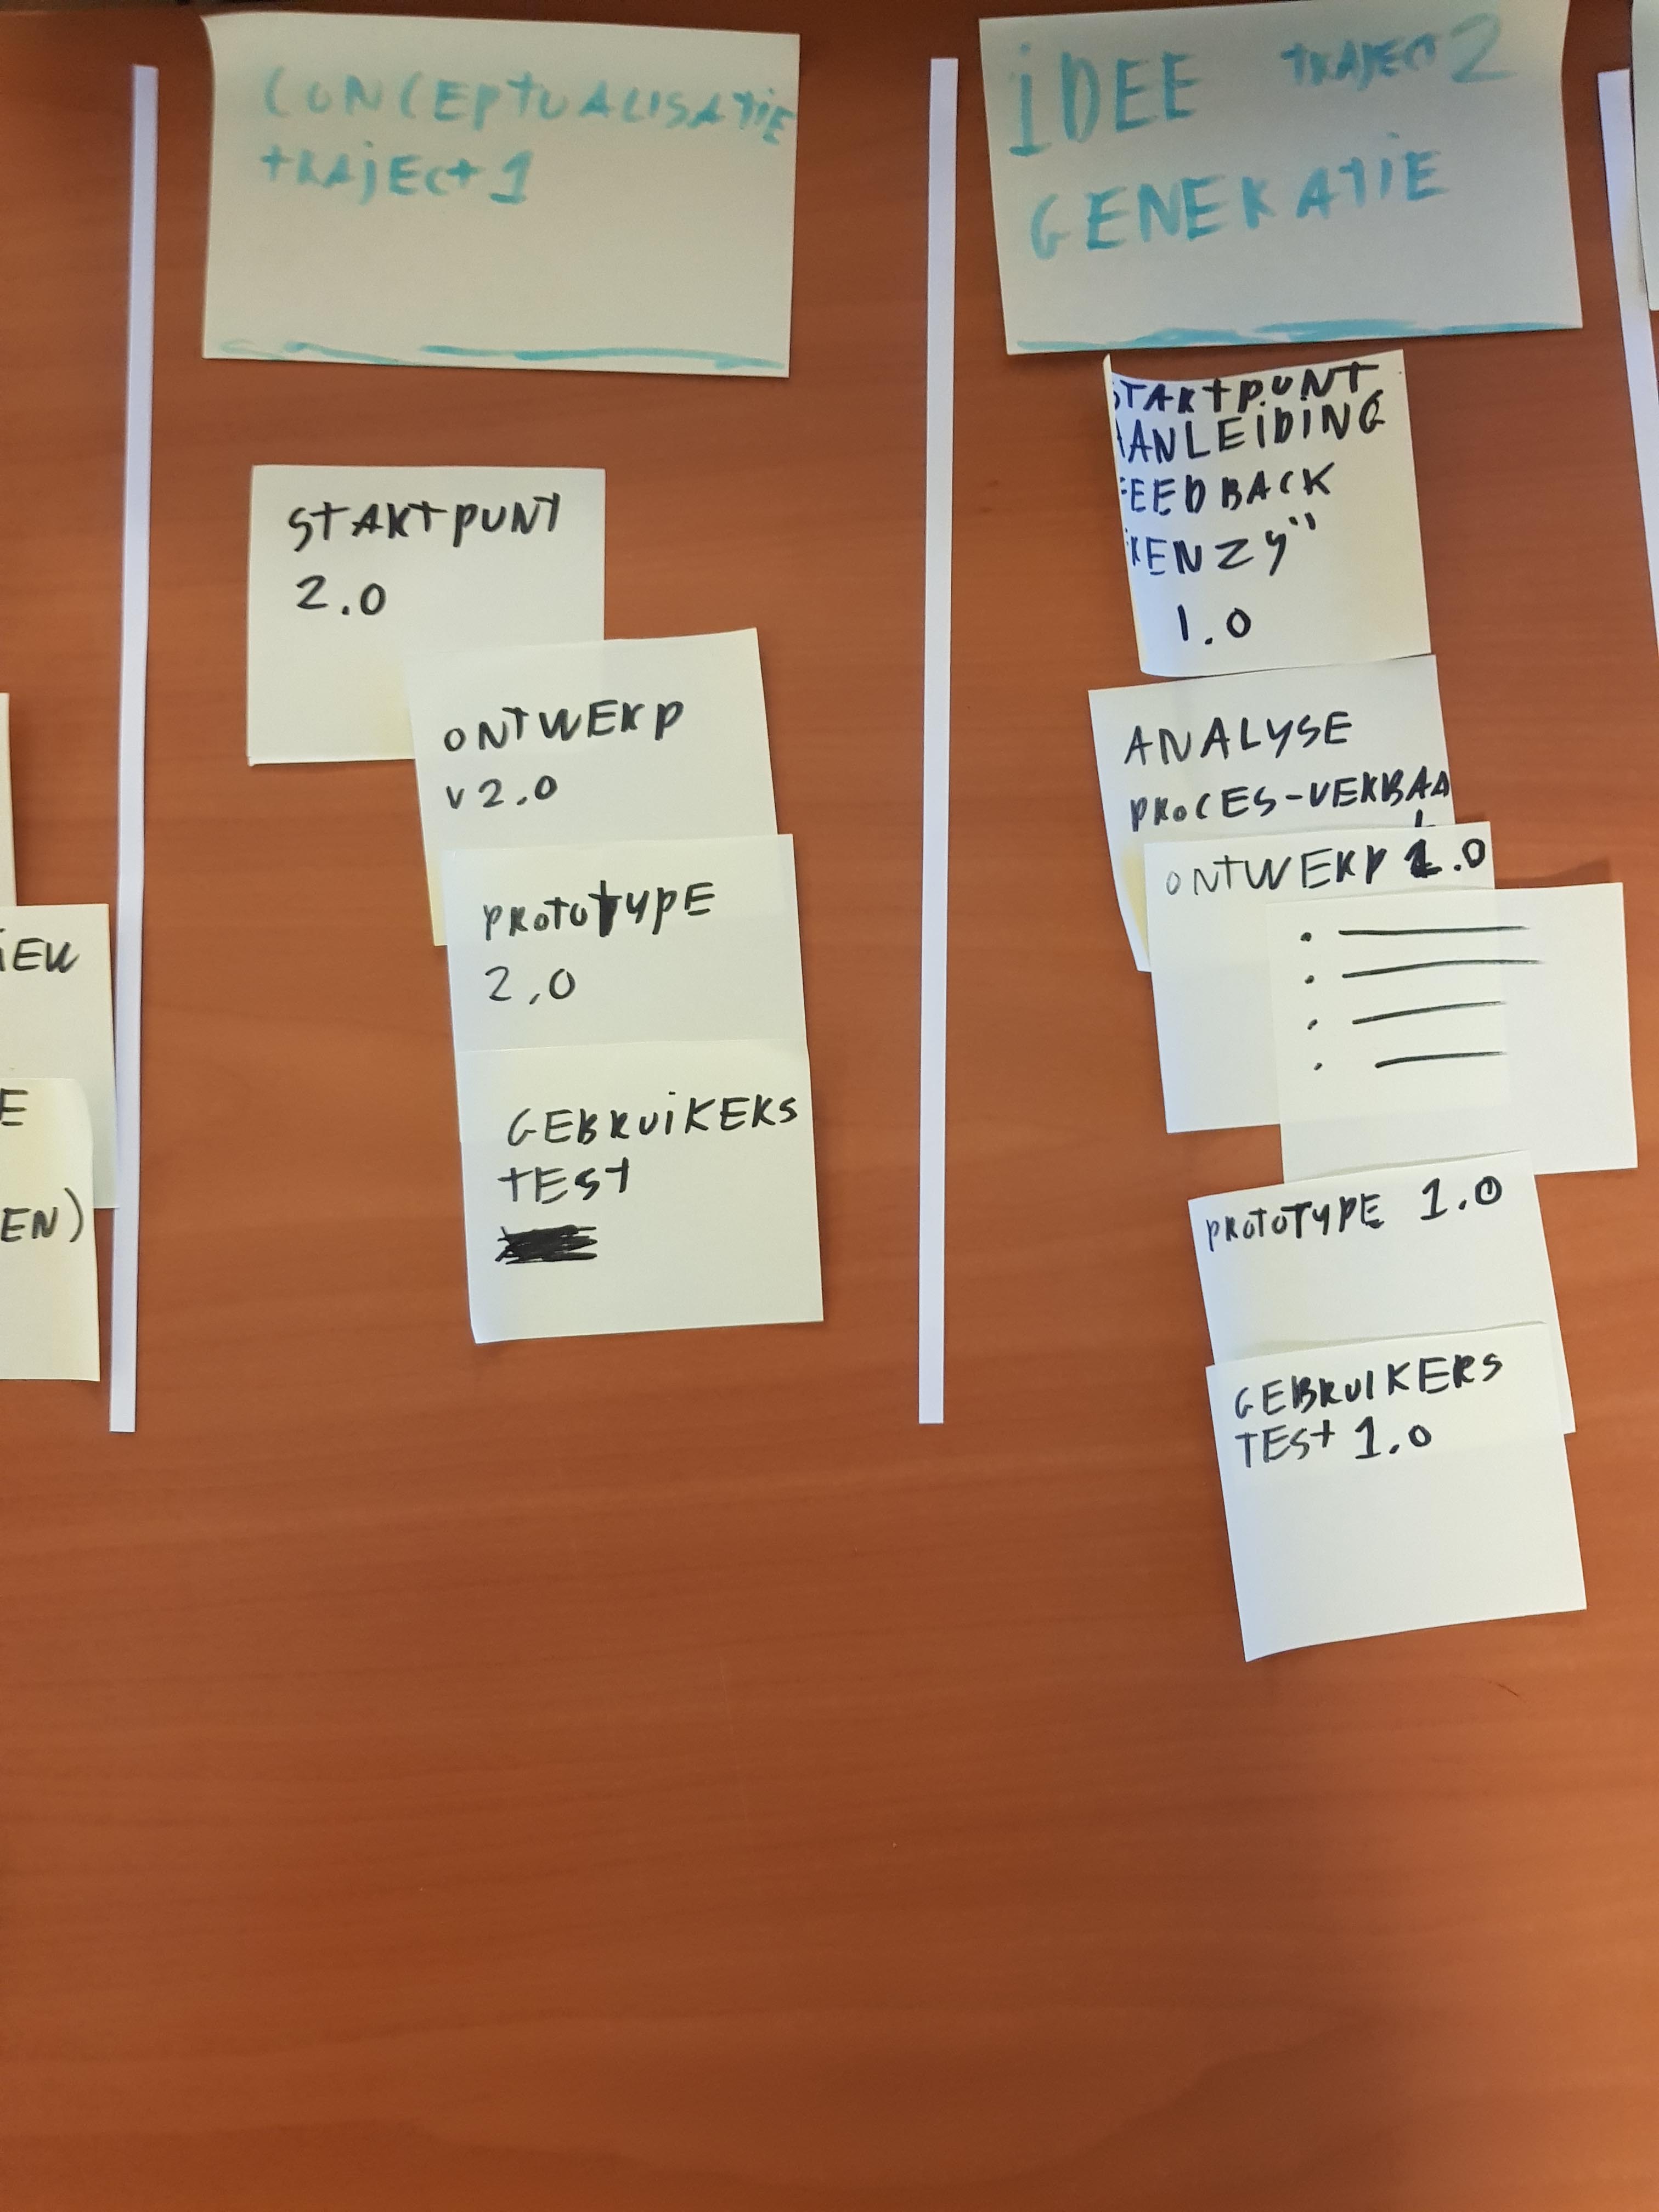 CONCEPTUALISATIE
TRAJECT 1
STARTPUNT
2.0
ONTWERP
V2.0
PROTOTYPE
2.0
GEBRUIKERS
TEST
IDEE TRAJECT 2
GENERATIE
STARTPUNT
AANLEIDING
FEEDBACK
"KENZY"
1.0
ANALYSE
PROCES-VERBAAL
ONTWERP 1.0
PROTOTYPE 1.0
GEBRUIKERS
TEST 1.0
IEW
E
EN)